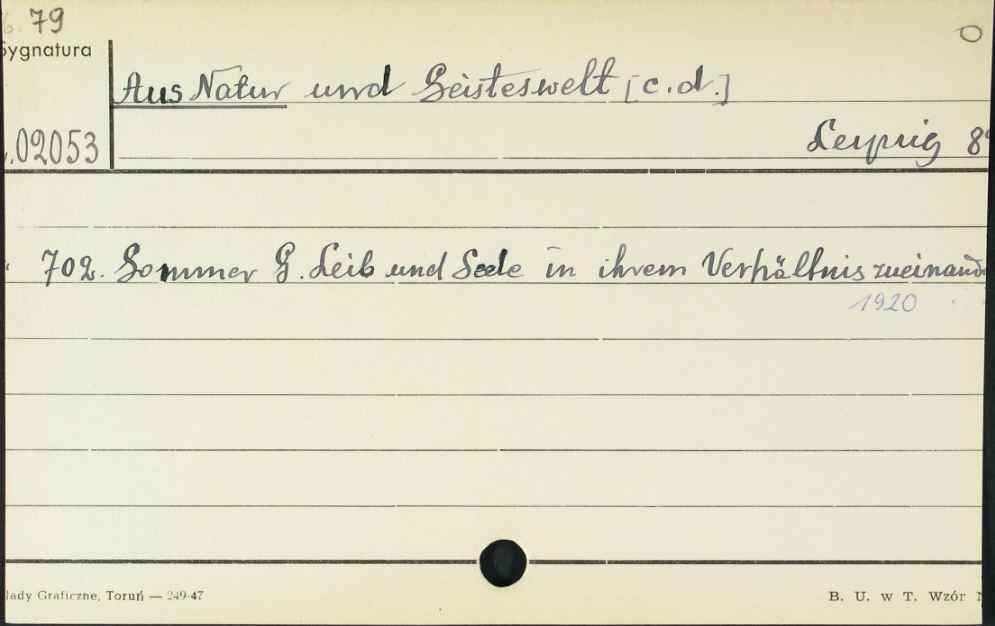 79
Sygnatura
Aus Natur und Geisteswelt [c.d.]
02053
Leipzig 8°
702. Sommer G. Leib und Seele in ihrem Verhältnis zueinand
1920
lady Graficzne, Toruń — 249-47
B. U. w T. Wzór